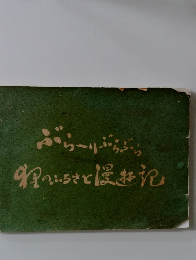 ぶらーりぶらぶら
狸のふるさと漫遊記